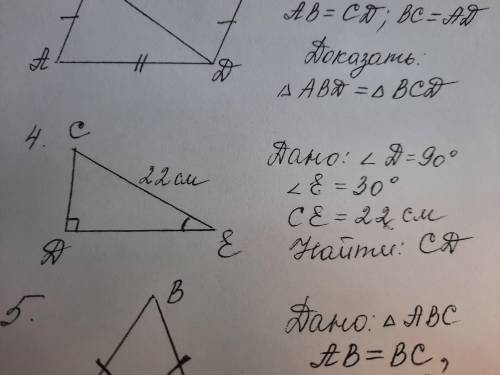 AB = CD; BC = AD
Доказать:
△ ABD = △ BCD
A
D
4.
C
22 см
D
E
Дано: ∠ D = 90°
∠ E = 30°
CE = 22 см
Найти: CD
5.
B
Дано: △ ABC
AB = BC,